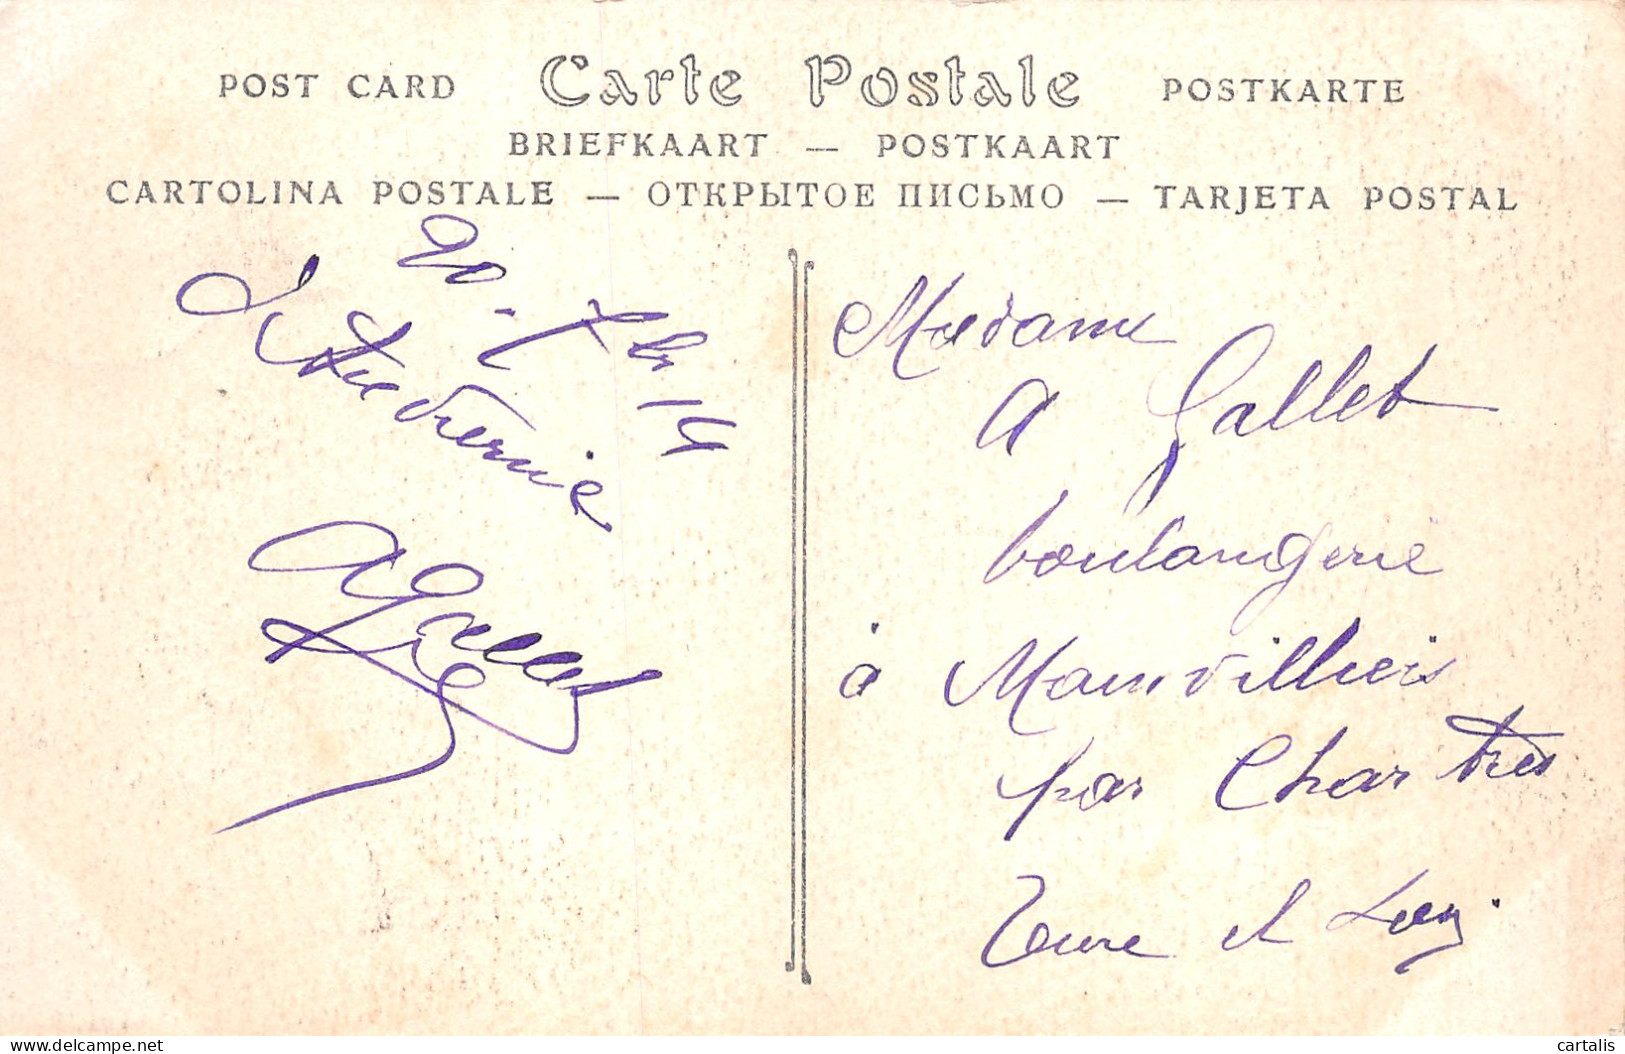 POST CARD Carte Postale POSTKARTE
BRIEFKAART — POSTKAART
CARTOLINA POSTALE — ОТКРЫТОЕ ПИСЬМО — TARJETA POSTAL
20 - 7br 14
A Gallet
Madame
A Gallet
boulangerie
à Mainvilliers
par Chartres
Eure et Loir
cartalis